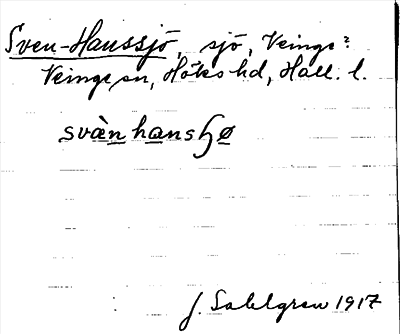 Sven-Hanssjö, sjö, Veinge?
Veinge sn, Höks hd, Hall. l.
svànhansɧø
J. Sahlgren 1917